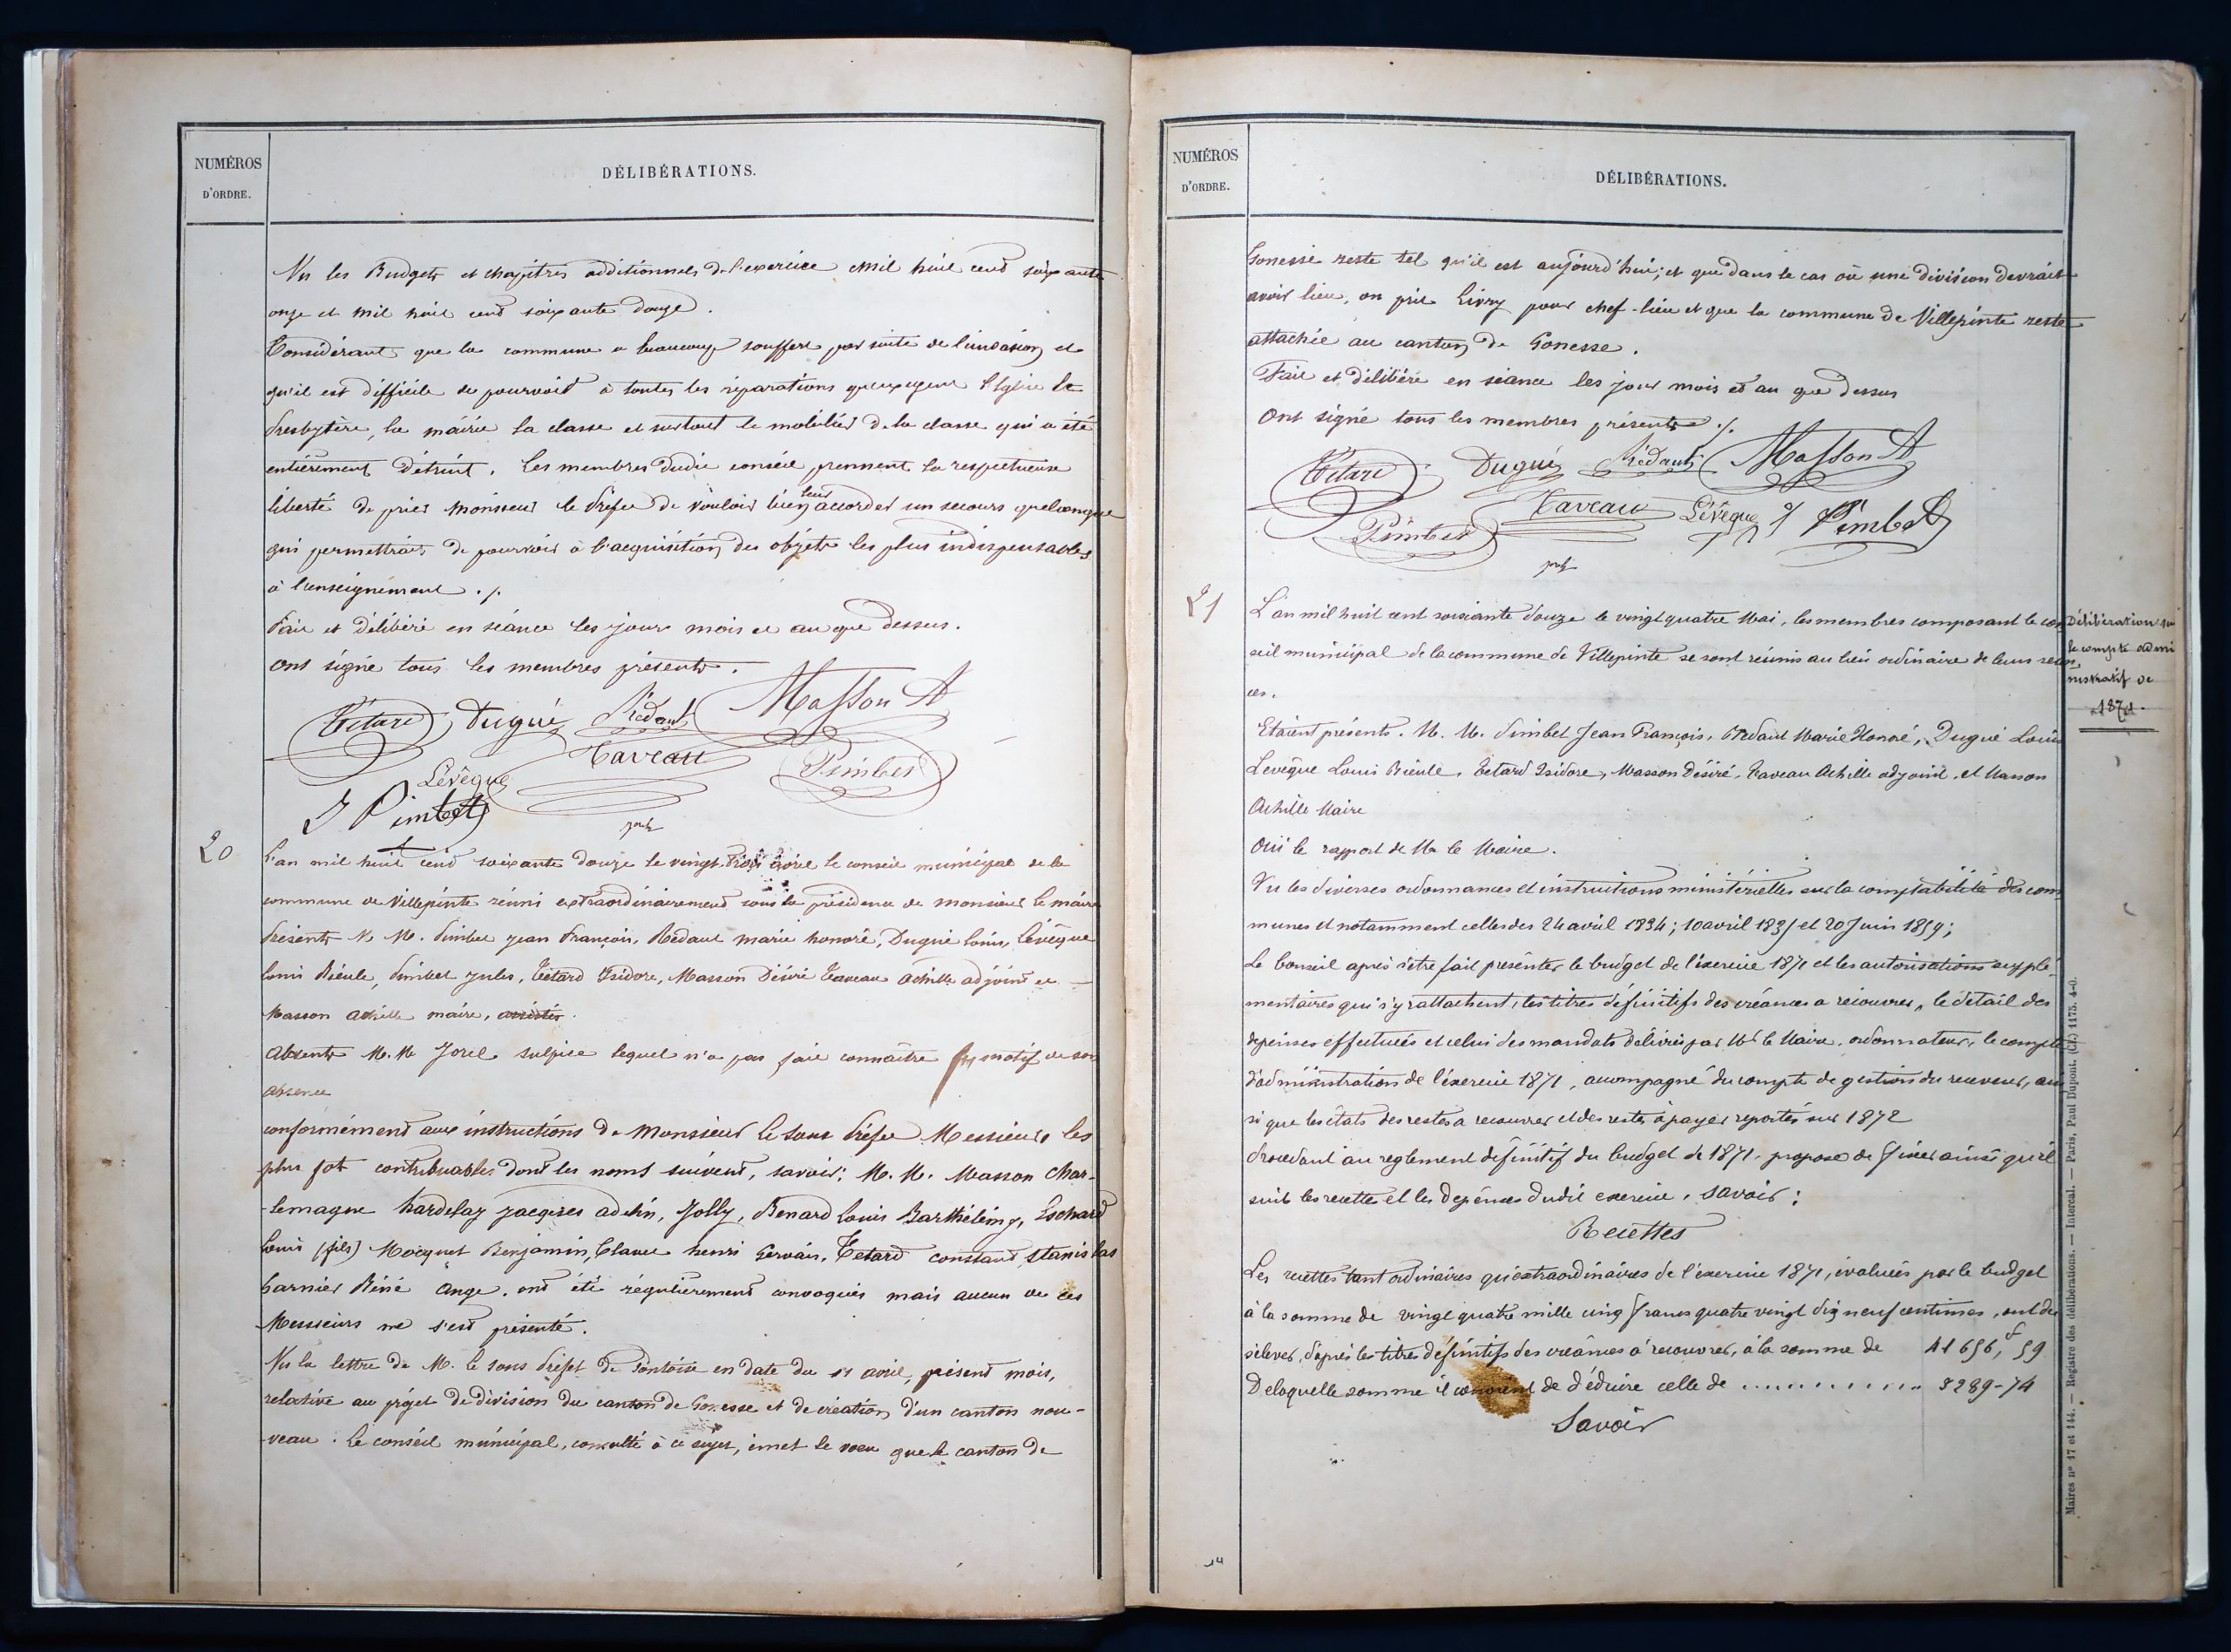 NUMÉROS
D'ORDRE.
DÉLIBÉRATIONS.
Vu les Budgets et chapitres additionnels de l'exercice mil huit cent soixante
onze et mil huit cent soixante douze.
Considérant que la commune a beaucoup souffert par suite de l'invasion et
qu'il est difficile de pourvoir à toutes les réparations qu'exigent l'Eglise le
Presbytère, la mairie la classe et surtout le mobilier de la classe qui a été
entièrement détruit. Les membres dudit conseil prennent la respectueuse
liberté de prier Monsieur le Préfet de vouloir bien leur accorder un secours quelconque
qui permettrait de pourvoir à l'acquisition des objets les plus indispensables
à l'enseignement ./.
Fait et délibéré en séance les jour mois et an que dessus.
Ont signé tous les membres présents.
Tétard Dugué Rédaut Masson A
Lévêque Taveau Pimbet
J Pimbet
20
L'an mil huit cent soixante douze le vingt-trois avril le conseil municipal de la
commune de Villepinte réuni extraordinairement sous la présidence de monsieur le maire
Présents M. M. Pimbet Jean François, Rédaut marie honoré, Dugué Louis, Lévêque
Louis Rieule, Pimbet Jules, Tétard Isidore, Masson Désiré Taveau Achille adjoint et
Masson Achille maire, assistés.
Absents M. M Jorel Sulpice lequel n'a pas fait connaître le motif de son
absence
conformément aux instructions de Monsieur le Sous Préfet Messieurs les
plus fort contribuables dont les noms suivent, savoir: M. M. Masson Char-
-lemagne hardelay Jacques adelin, Jolly, Benard Louis Barthélémy, Eschard
Louis (fils) Mocquet Benjamin, Clavel henri Gervais, Tetard constant stanislas
Garnier Réné Ange. ont été régulièrement convoqués mais aucun de ces
Messieurs ne s'est présenté.
Vu la lettre de M. le Sous Préfet de Pontoise en date du 11 avril, présent mois,
relative au projet de division du canton de Gonesse et de création d'un canton nou-
-veau. Le conseil municipal, consulté à ce sujet, émet le voeu que le canton de
NUMÉROS
D'ORDRE.
DÉLIBÉRATIONS.
Gonesse reste tel qu'il est aujourd'hui; et que dans le cas où une division devrait
avoir lieu, on prit Livry pour chef-lieu et que la commune de Villepinte reste
attachée au canton de Gonesse.
Fait et délibéré en séance les jour mois et an que dessus
Ont signé tous les membres présents ./.
Tétard Dugué Rédaut Masson A
Pimbet Taveau Lévêque J Pimbet
21
L'an mil huit cent soixante douze le vingt quatre Mai, les membres composant le con
seil municipal de la commune de Villepinte se sont réunis au lieu ordinaire de leurs séan
ces.
Délibération sur
le compte admi
nistratif de
1871.
Etaient présents. M. M. Pimbet Jean François, Rédaut Marie Honoré, Dugué Louis
Leveque Louis Rieule, Tetard Isidore, Masson Désiré, Taveau Achille adjoint, et Masson
Achille Maire
Oui le rapport de Mr le Maire.
Vu les diverses ordonnances et instructions ministérielles sur la comptabilité des com
munes et notamment celles des 24 avril 1834; 10 avril 1835 et 20 Juin 1859;
Le Conseil après s'être fait présenter le budget de l'exercice 1871 et les autorisations supplé-
mentaires qui s'y rattachent, les titres définitifs des créances a recouvrer, le détail des
dépenses effectuées et celui des mandats délivrés par Mr le Maire, ordonnateur, le compte
d'administration de l'exercice 1871, accompagné du compte de gestion du receveur, ain
si que les états des restes a recouvrer et des restes à payer reportés sur 1872
Procedant au reglement définitif du budget de 1871, propose de fixer ainsi qu'il
suit les recettes et les dépenses dudit exercice, savoir:
Recettes
Les recettes tant ordinaires qu'extraordinaires de l'exercice 1871, évaluées par le budget
à la somme de vingt quatre mille cinq francs quatre vingt dix neuf centimes, ont du
s'élever, d'après les titres définitifs des créances à recouvrer, à la somme de 41 656,f 59
De laquelle somme il convient de déduire celle de ............ 8289-74
Savoir
14
Maires no 17 et 144. — Registre des délibérations. — Intercal. — Paris, Paul Dupont. (Cl.) 1175. 4-0.